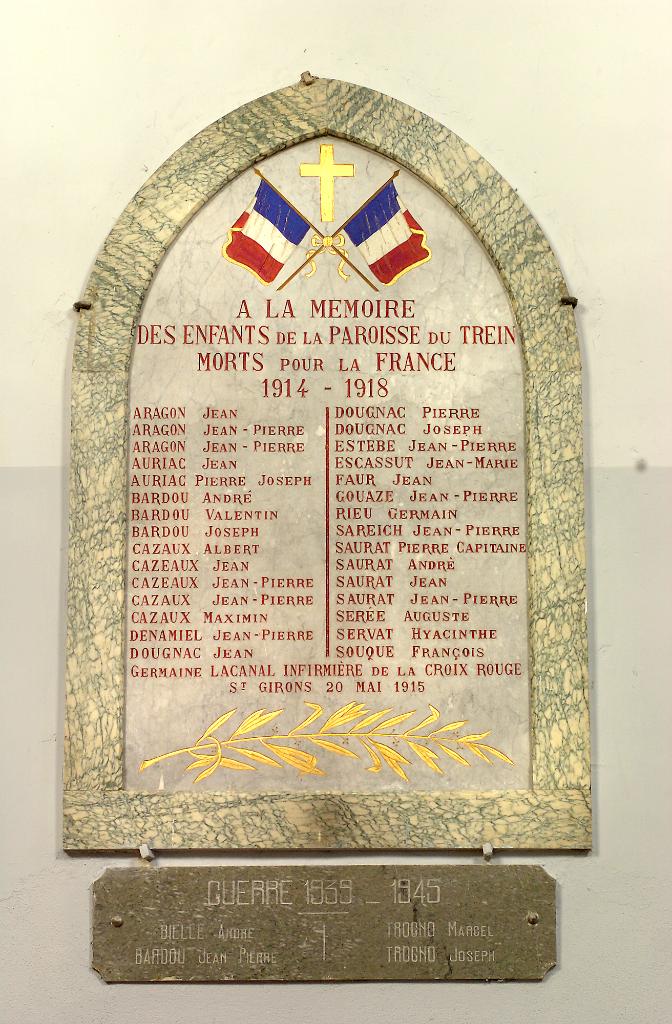 A LA MEMOIRE
DES ENFANTS DE LA PAROISSE DU TREIN
MORTS POUR LA FRANCE
1914 - 1918
ARAGON JEAN
ARAGON JEAN-PIERRE
ARAGON JEAN-PIERRE
AURIAC JEAN
AURIAC PIERRE JOSEPH
BARDOU ANDRÉ
BARDOU VALENTIN
BARDOU JOSEPH
CAZAUX ALBERT
CAZEAUX JEAN
CAZEAUX JEAN-PIERRE
CAZAUX JEAN-PIERRE
CAZAUX MAXIMIN
DENAMIEL JEAN-PIERRE
DOUGNAC JEAN
DOUGNAC PIERRE
DOUGNAC JOSEPH
ESTÈBE JEAN-PIERRE
ESCASSUT JEAN-MARIE
FAUR JEAN
GOUAZE JEAN-PIERRE
RIEU GERMAIN
SAREICH JEAN-PIERRE
SAURAT PIERRE CAPITAINE
SAURAT ANDRÈ
SAURAT JEAN
SAURAT JEAN-PIERRE
SERÉE AUGUSTE
SERVAT HYACINTHE
SOUQUE FRANÇOIS
GERMAINE LACANAL INFIRMIÈRE DE LA CROIX ROUGE
ST GIRONS 20 MAI 1915
GUERRE 1939 _ 1945
BIELLE ANDRE
BARDOU JEAN PIERRE
TROGNO MARCEL
TROGNO JOSEPH